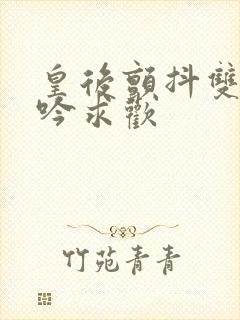 皇後顫抖雙
吟求歡
竹苑青青